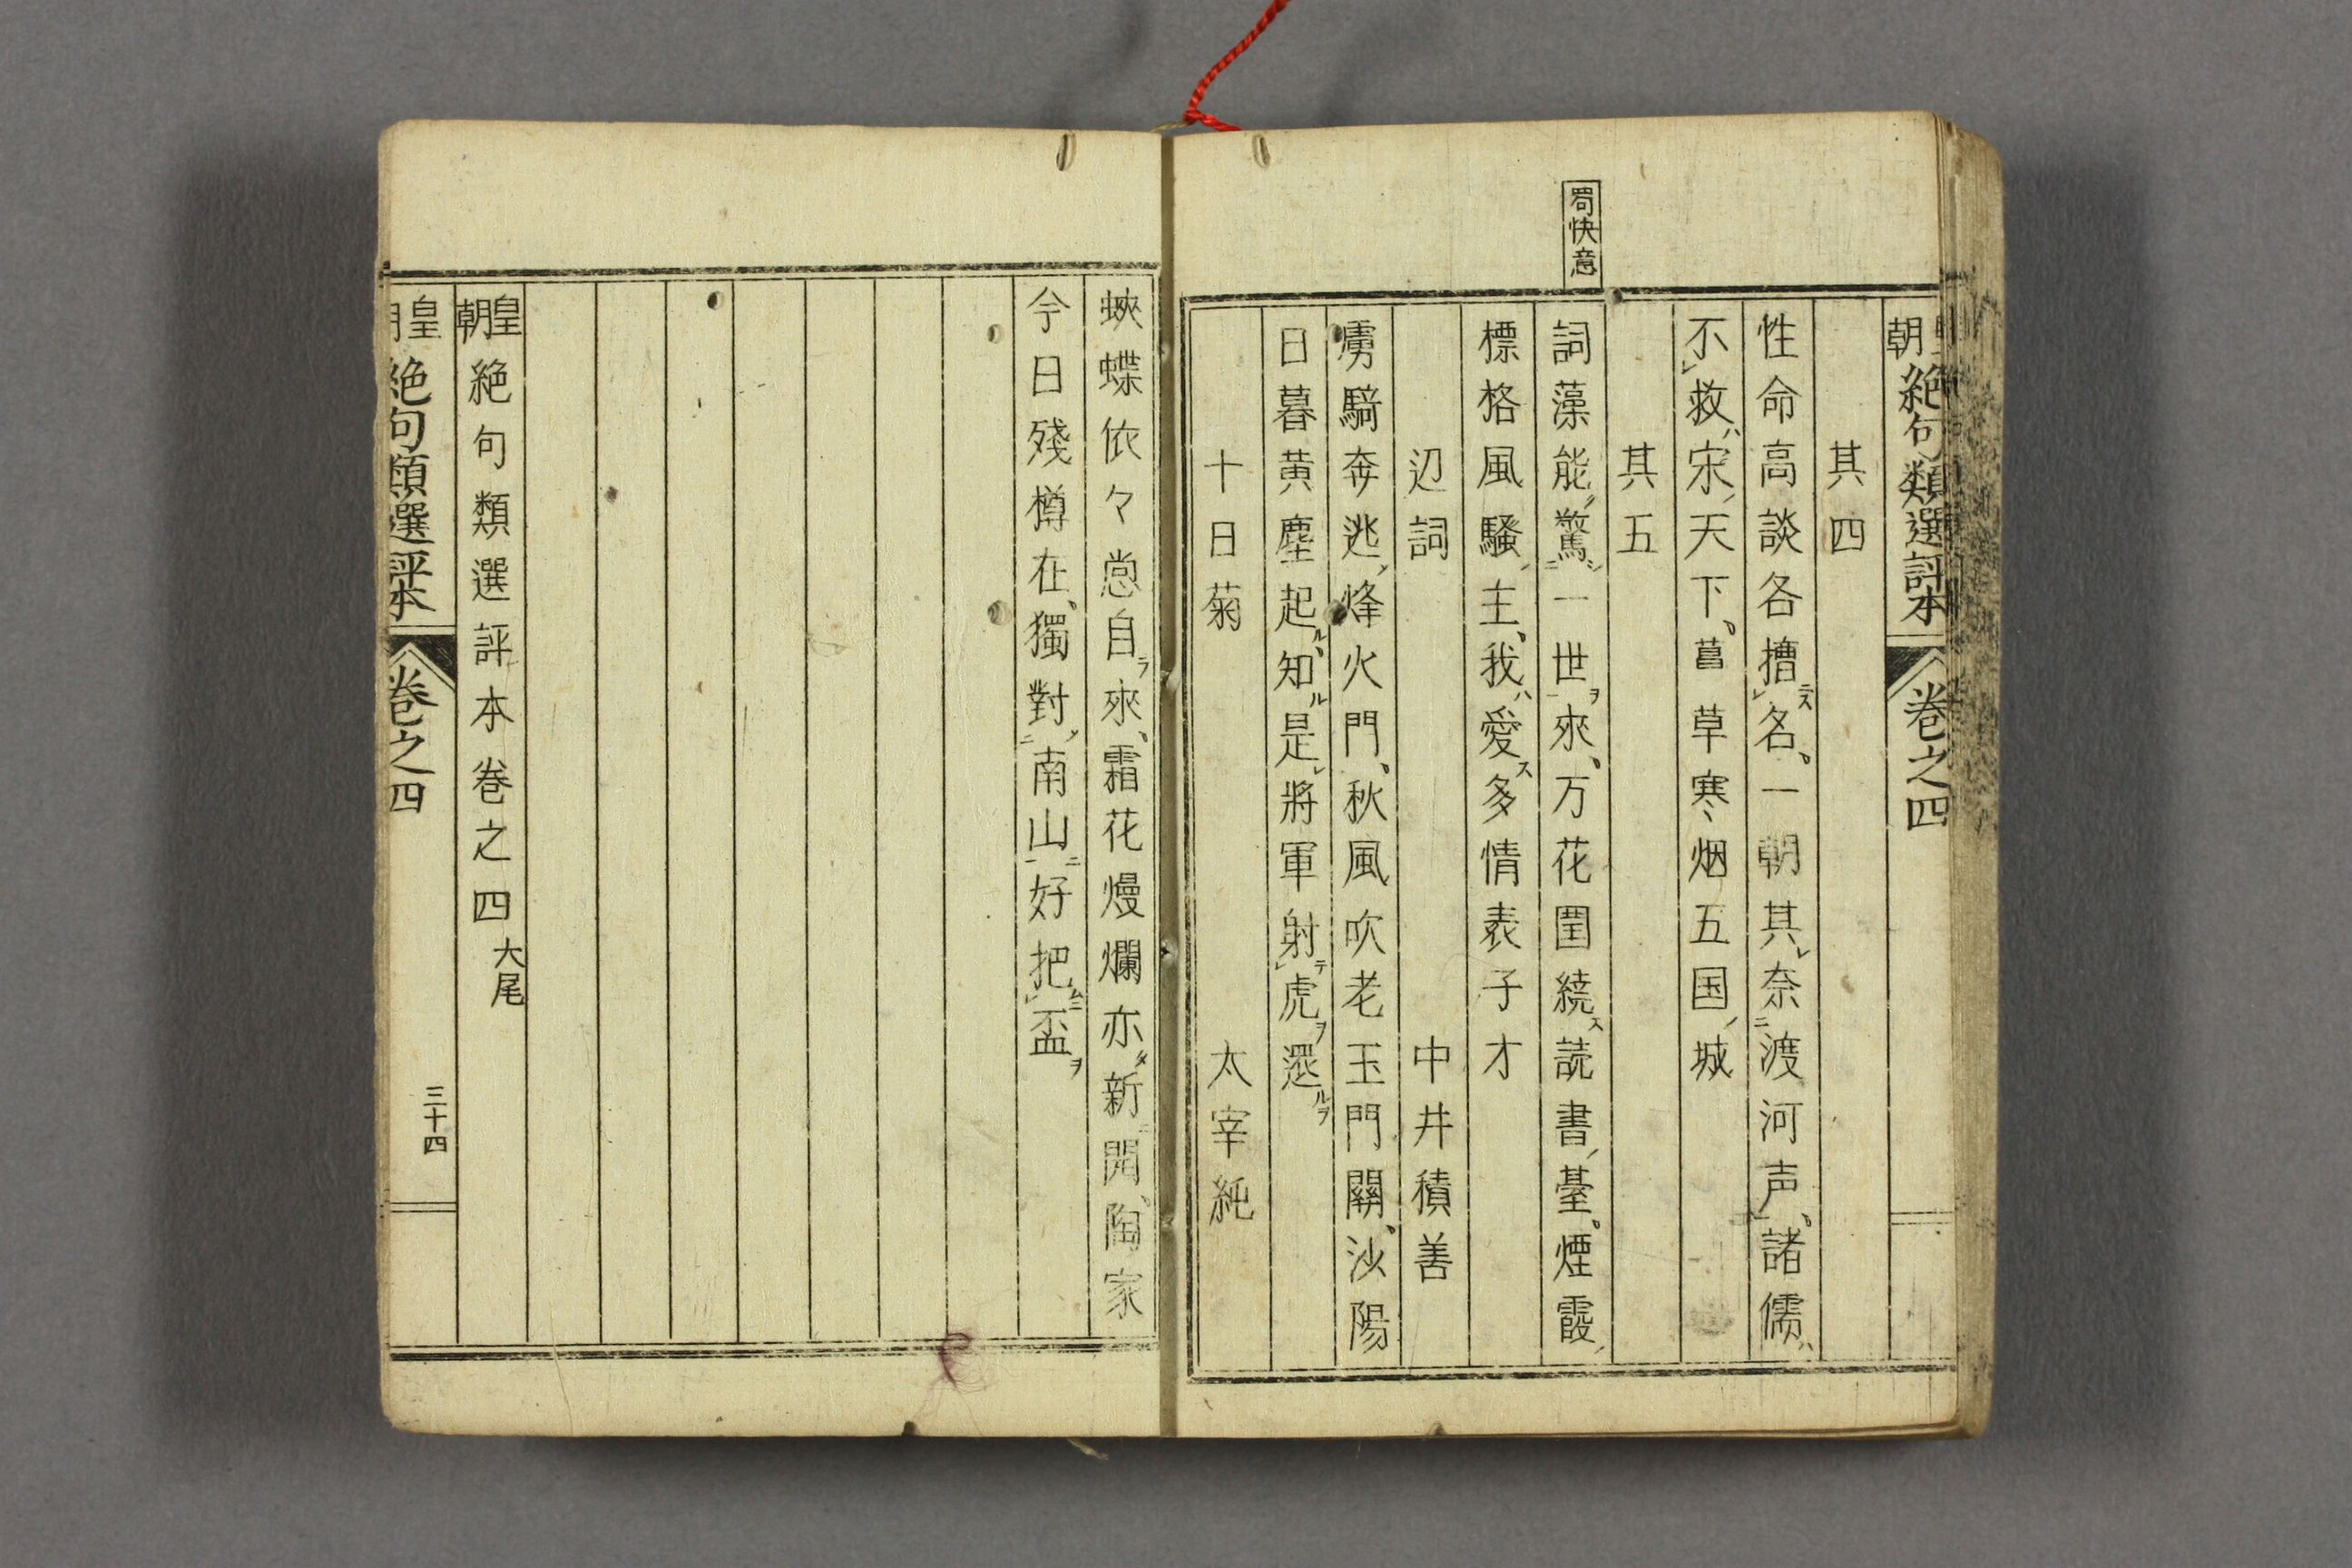 朝絶句類選評本 巻之四
其四
性命高談各擅名、一朝其奈渡河声、諸儒
不救宋天下、菖草寒烟五国城
其五
蜀快意
詞藻能驚一世来、万花囲繞読書臺、煙霞
標格風騒主、我愛多情表子才
辺詞 中井積善
虜騎奔逃烽火門、秋風吹老玉門關、沙陽
日暮黄塵起、知是將軍射虎還
十日菊 太宰純
蛺蝶依々怨自来、霜花熳爛亦新開、陶家
今日殘樽在、獨對南山好把盃
皇朝絶句類選評本巻之四 大尾
皇朝絶句類選評本 巻之四 三十四